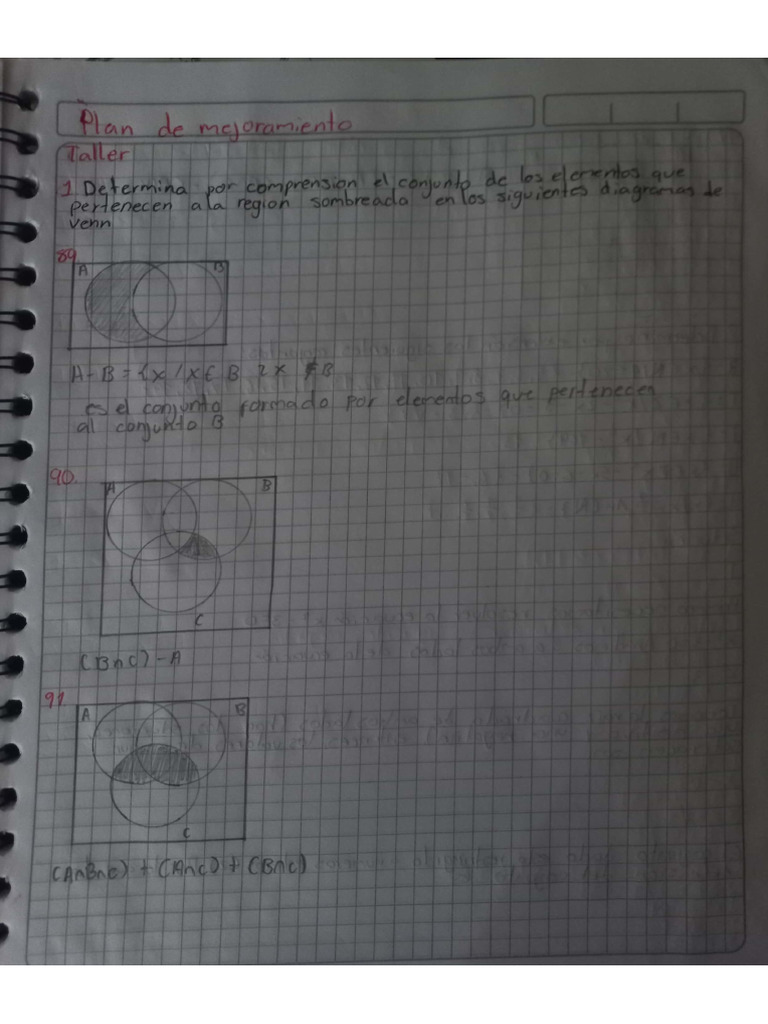 Plan de mejoramiento
Taller
1 Determina por comprension el conjunto de los elementos que
pertenecen a la region sombreada en los siguientes diagramas de
venn
89
A B
A-B = {x / x ∈ B x ∉ B
es el conjunto formado por elementos que pertenecen
al conjunto B
90.
A B
C
(B∩C) - A
91.
A B
C
(A∩B∩C) + (A∩C) + (B∩C)